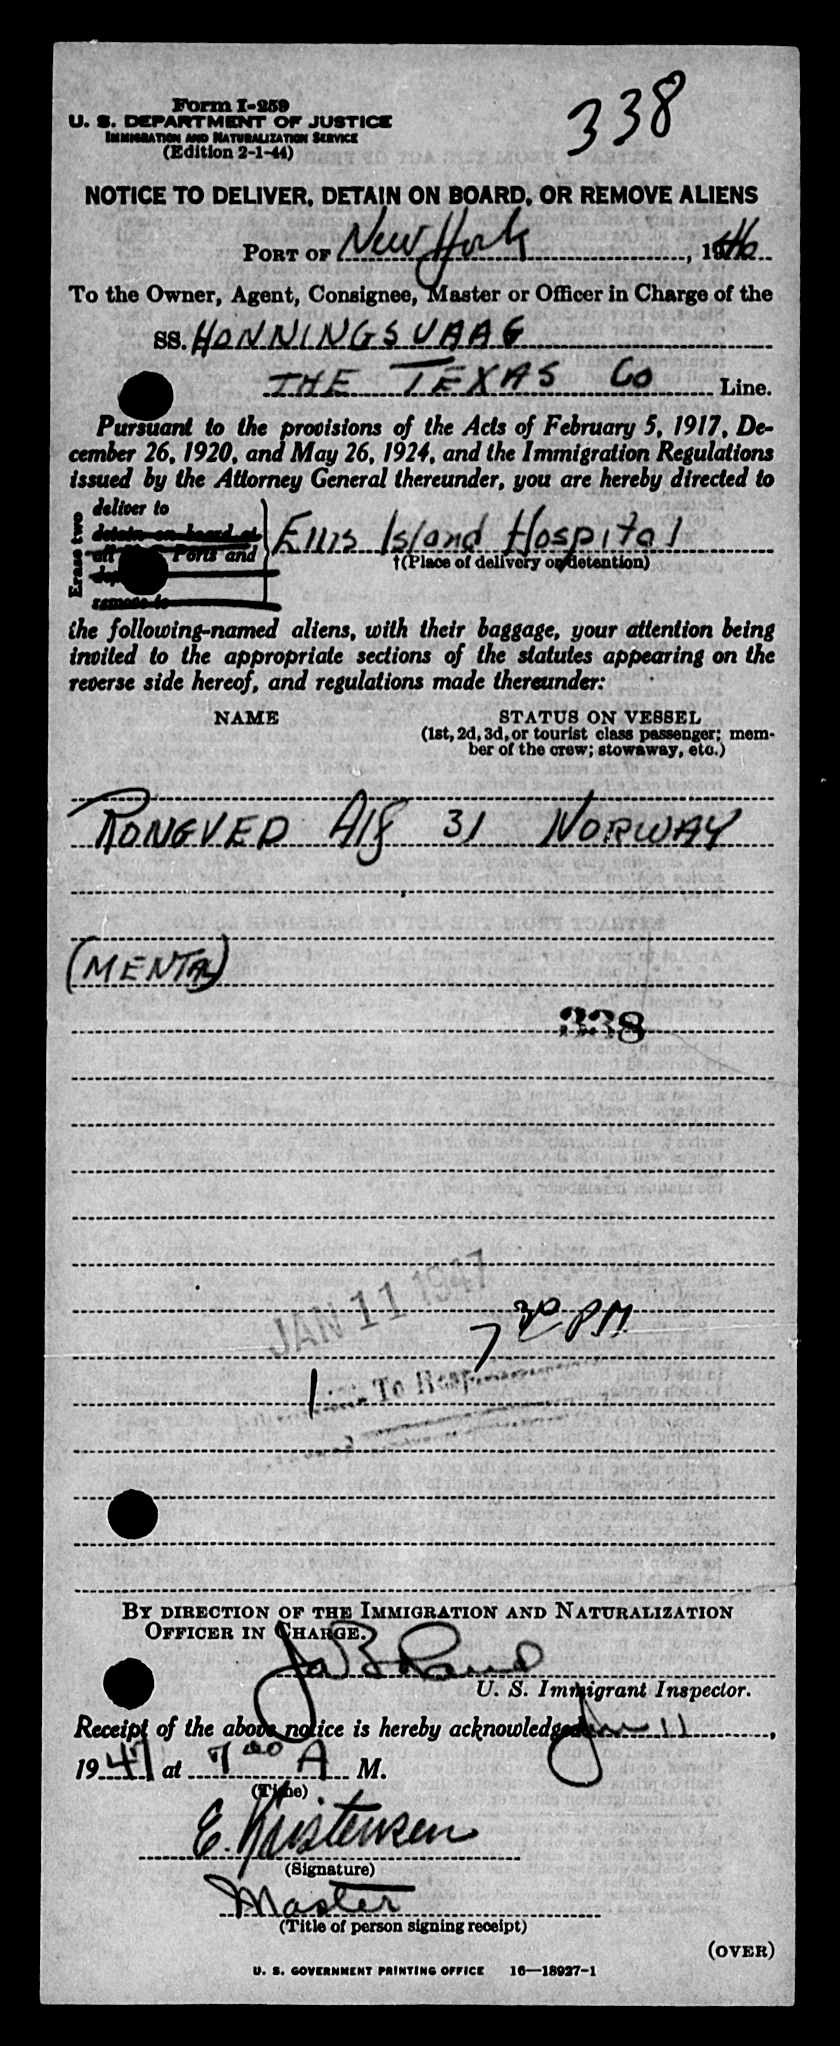 Form I-259
338
U. S. DEPARTMENT OF JUSTICE
IMMIGRATION AND NATURALIZATION SERVICE
(Edition 2-1-44)
NOTICE TO DELIVER, DETAIN ON BOARD, OR REMOVE ALIENS
PORT OF New York, 1946
To the Owner, Agent, Consignee, Master or Officer in Charge of the
SS. HONNINGSVAAG
THE TEXAS Co Line.
Pursuant to the provisions of the Acts of February 5, 1917, De-
cember 26, 1920, and May 26, 1924, and the Immigration Regulations
issued by the Attorney General thereunder, you are hereby directed to
Erase two
deliver to
detain on board at
all Ports and
remove to
Ellis Island Hospital
†(Place of delivery or detention)
the following-named aliens, with their baggage, your attention being
invited to the appropriate sections of the statutes appearing on the
reverse side hereof, and regulations made thereunder:
NAME STATUS ON VESSEL
(1st, 2d, 3d, or tourist class passenger; mem-
ber of the crew; stowaway, etc.)
RONGVED Alf 31 NORWAY
(MENTAL)
338
JAN 11 1947
7 30 PM
1 To Hosp
BY DIRECTION OF THE IMMIGRATION AND NATURALIZATION
OFFICER IN CHARGE.
U. S. Immigrant Inspector.
Receipt of the above notice is hereby acknowledged Jan 11,
1947 at 7 00 A M.
(Time)
E. Kristensen
(Signature)
Master
(Title of person signing receipt)
(OVER)
U. S. GOVERNMENT PRINTING OFFICE 16—18927-1